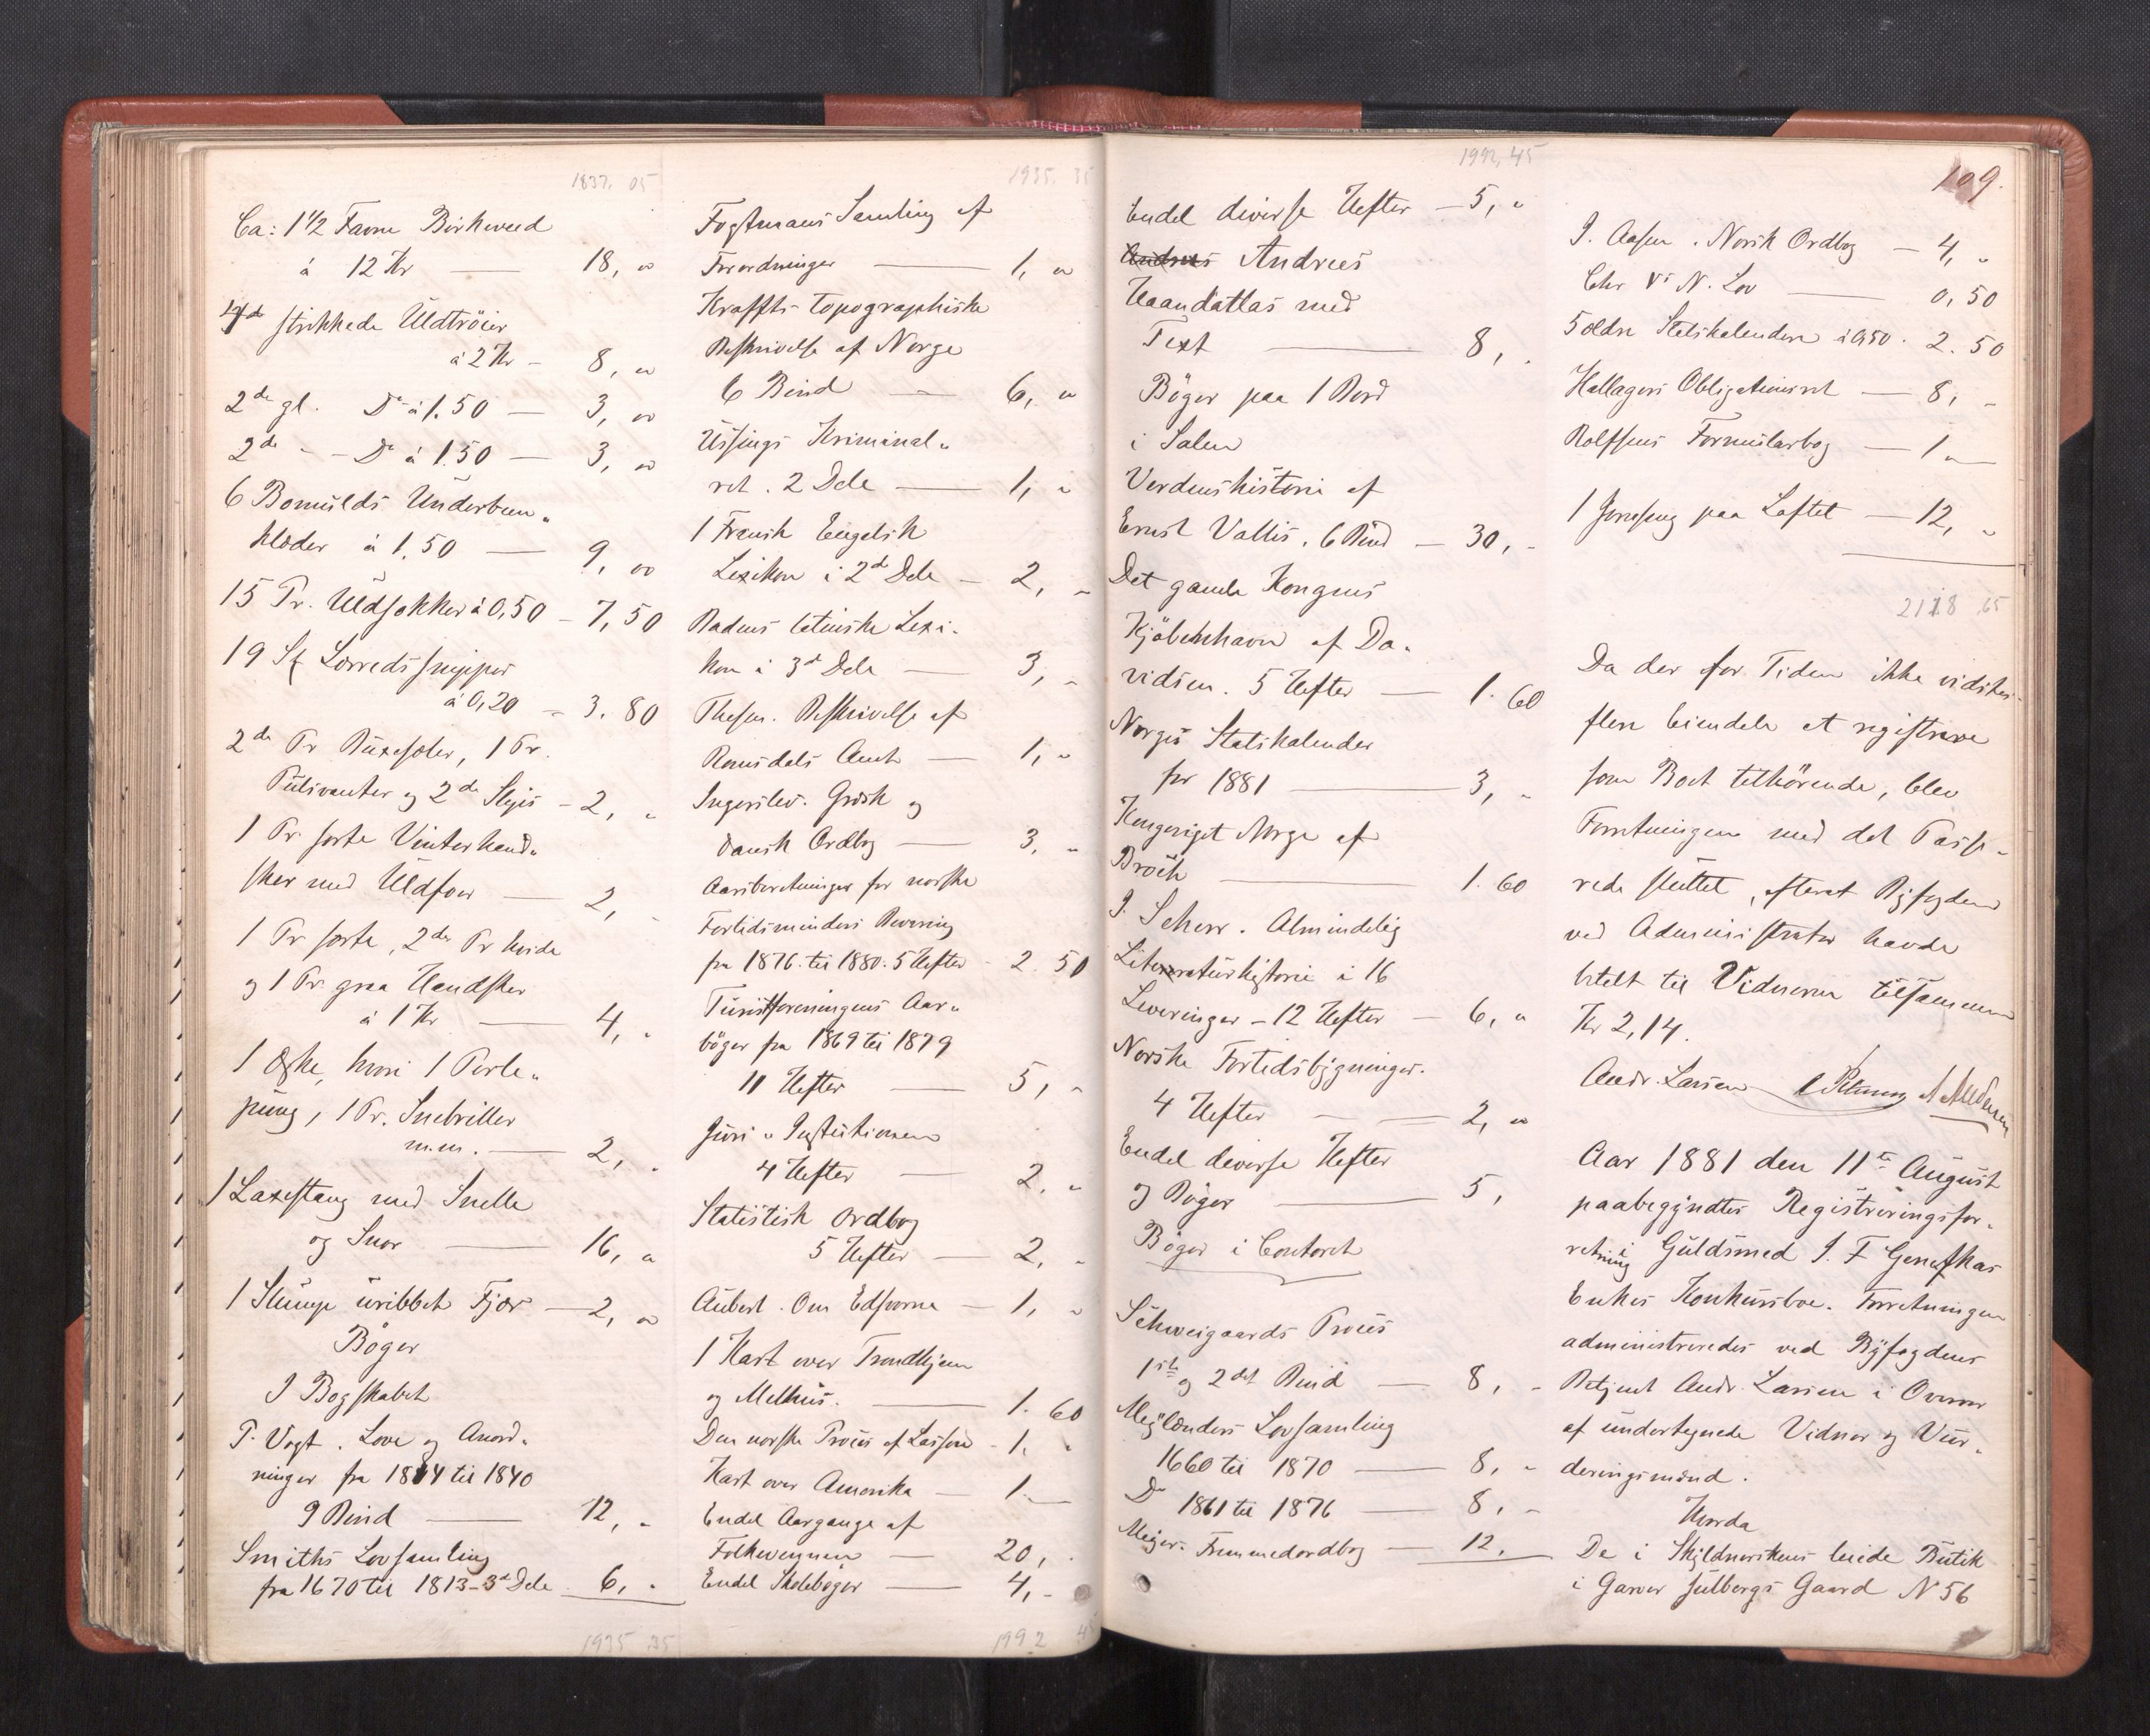 1837, 05
Ca: 1 1/2 Favne Birkeved
à 12 Kr — 18, "
4de strikkede Uldtröier
à 2 Kr — 8, "
2de gl. Do à 1.50 — 3, "
2de " — Do à 1.50 — 3, "
6 Bomulds Underben-
klæder à 1.50 — 9, "
15 Pr. Uldsokker à 0,50 — 7,50
19 St Lærredssnipper
à 0,20 — 3.80
2de Pr Buxesæler, 1 Pr.
Pulsvanter og 2de Slips — 2, "
1 Pr. sorte Vinterhand-
sker med Uldfoer — 2, "
1 Pr sorte, 2de Pr hvide
og 1 Pr. graa Handsker
à 1 Kr — 4, "
1 Æske, hvori 1 Perle-
pung, 1 Pr. Snebriller
m.m. — 2, "
1 Laxestang med Snelle
og Snor — 16, "
1 Slump uribbet Fjær — 2, "
Bøger
I Bogskabet
P. Vogt. Love og Anord-
ninger fra 1814 til 1840
9 Bind — 12, "
Smiths Lovsamling
fra 1670 til 1813 - 3de Dele 6, "
1935 35
1935. 35
Fogtmans Samling af
Forordninger — 1, "
Kraffts topographiske
Beskrivelse af Norge
6 Bind — 6, "
Ussings Kriminal-
ret. 2 Dele — 1, "
1 Fransk Engelsk
Lexikon i 2de Dele — 2, "
Badens latinske Lexi-
kon i 3de Dele — 3, "
Thesen. Beskrivelse af
Romsdals Amt — 1, "
Ingerslev. Græsk og
dansk Ordbog — 3. "
Aarsberetninger for norske
Fortidsminders Bevaring
fra 1876 til 1880. 5 Hefter - 2.50
Turistforeningens Aar-
bøger fra 1869 til 1879
11 Hefter — 5, "
Juri-Institutionen
4 Hefter — 2. "
Statistisk Ordbog
5 Hefter — 2, "
Aubert. Om Edsvorne — 1, "
1 Kart over Trondhjem
og Melhus. — 1.60
Den norske Proces af Lasson - 1. "
Kart over Amerika — 1. —
Endel Aargange af
Folkevennen — 20, "
Endel Skolebøger — 4, -
1992 45
1992, 45
Endel diverse Hefter — 5, "
Andrees Andrees
Haandatlas med
Text — 8, "
Bøger paa 1 Bord
i Salen
Verdenshistorie af
Ernst Vallis. 6 Bind — 30, -
Det gamle Kongens
Kjøbenhavn af Da-
vidsen. 5 Hefter — 1.60
Norges Statskalender
for 1881 — 3, "
Kongeriget Norge af
Broch — 1.60
J. Scherr. Almindelig
Literaturhistorie i 16
Leveringer - 12 Hefter — 6, "
Norske Fortidsbygninger.
4 Hefter — 2, "
Endel diverse Hefter
og Bøger — 5,
Bøger i Contoret
Schweigaards Proces
1ste og 2det Bind — 8, "
Mejlænders Lovsamling
1660 til 1870 — 8, "
Do 1861 til 1876 — 8, "
Meijer. Fremmedordbog — 12,
109.
I. Aasen. Norsk Ordbog — 4, "
Chr Vs N. Lov — 0,50
5 ældre Statskalendere à 0,50. 2.50
Hallagers Obligationsret — 8, -
Rolfsens Formularbog — 1 "
1 Jernseng paa Loftet — 12, "
2118 65
Da der for Tiden ikke vidstes
flere Eiendele at registrere
som Boet tilhörende, blev
Forretningen med det Passe-
rede sluttet, efterat Byfogden
ved Administrator havde
betalt til Vidnerne tilsammen
Kr 2,14.
Andr. Larsen
Aar 1881 den 11te August
paabegyndtes Registreringsfor-
retning i Guldsmed I. F Genefkas
Enkes Konkursboe. Forretningen
administreredes ved Byfogdens
Betjent Andr. Larsen i Overvær
af undertegnede Vidner og Vur-
deringsmænd.
Hvorda
De i Skyldnerskens leiede Butik
i Garver Julbergs Gaard N 56